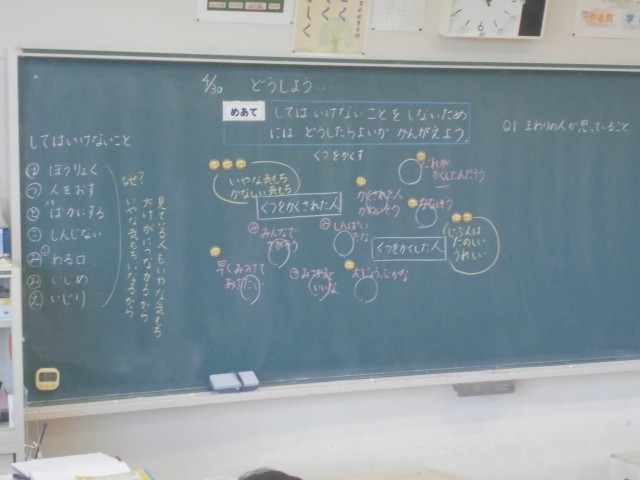 4/30 どうしよう..
めあて
してはいけないことをしないため
には どうしたらよいか かんがえよう
してはいけないこと
ぼうりょく
人をおす
ばかにする
しんじない
わる口
いじめ
いじり
なぜ?
見てる人もいやな気もち
大けがにつながるから
いやな気もちになるから
くつをかくす
いやな気もち
かなしい気もち
くつをかくされた人
だれが
かくしたんだろう
かくされた人
かわいそう
みんなで
さがそう
しんぱい
だな
くつをかくした人
じぶんは
たのしい
うれしい
早くみつけて
あげたい
みつかると
いいな
大じょうぶかな
Q1 まわりの人が思っていること